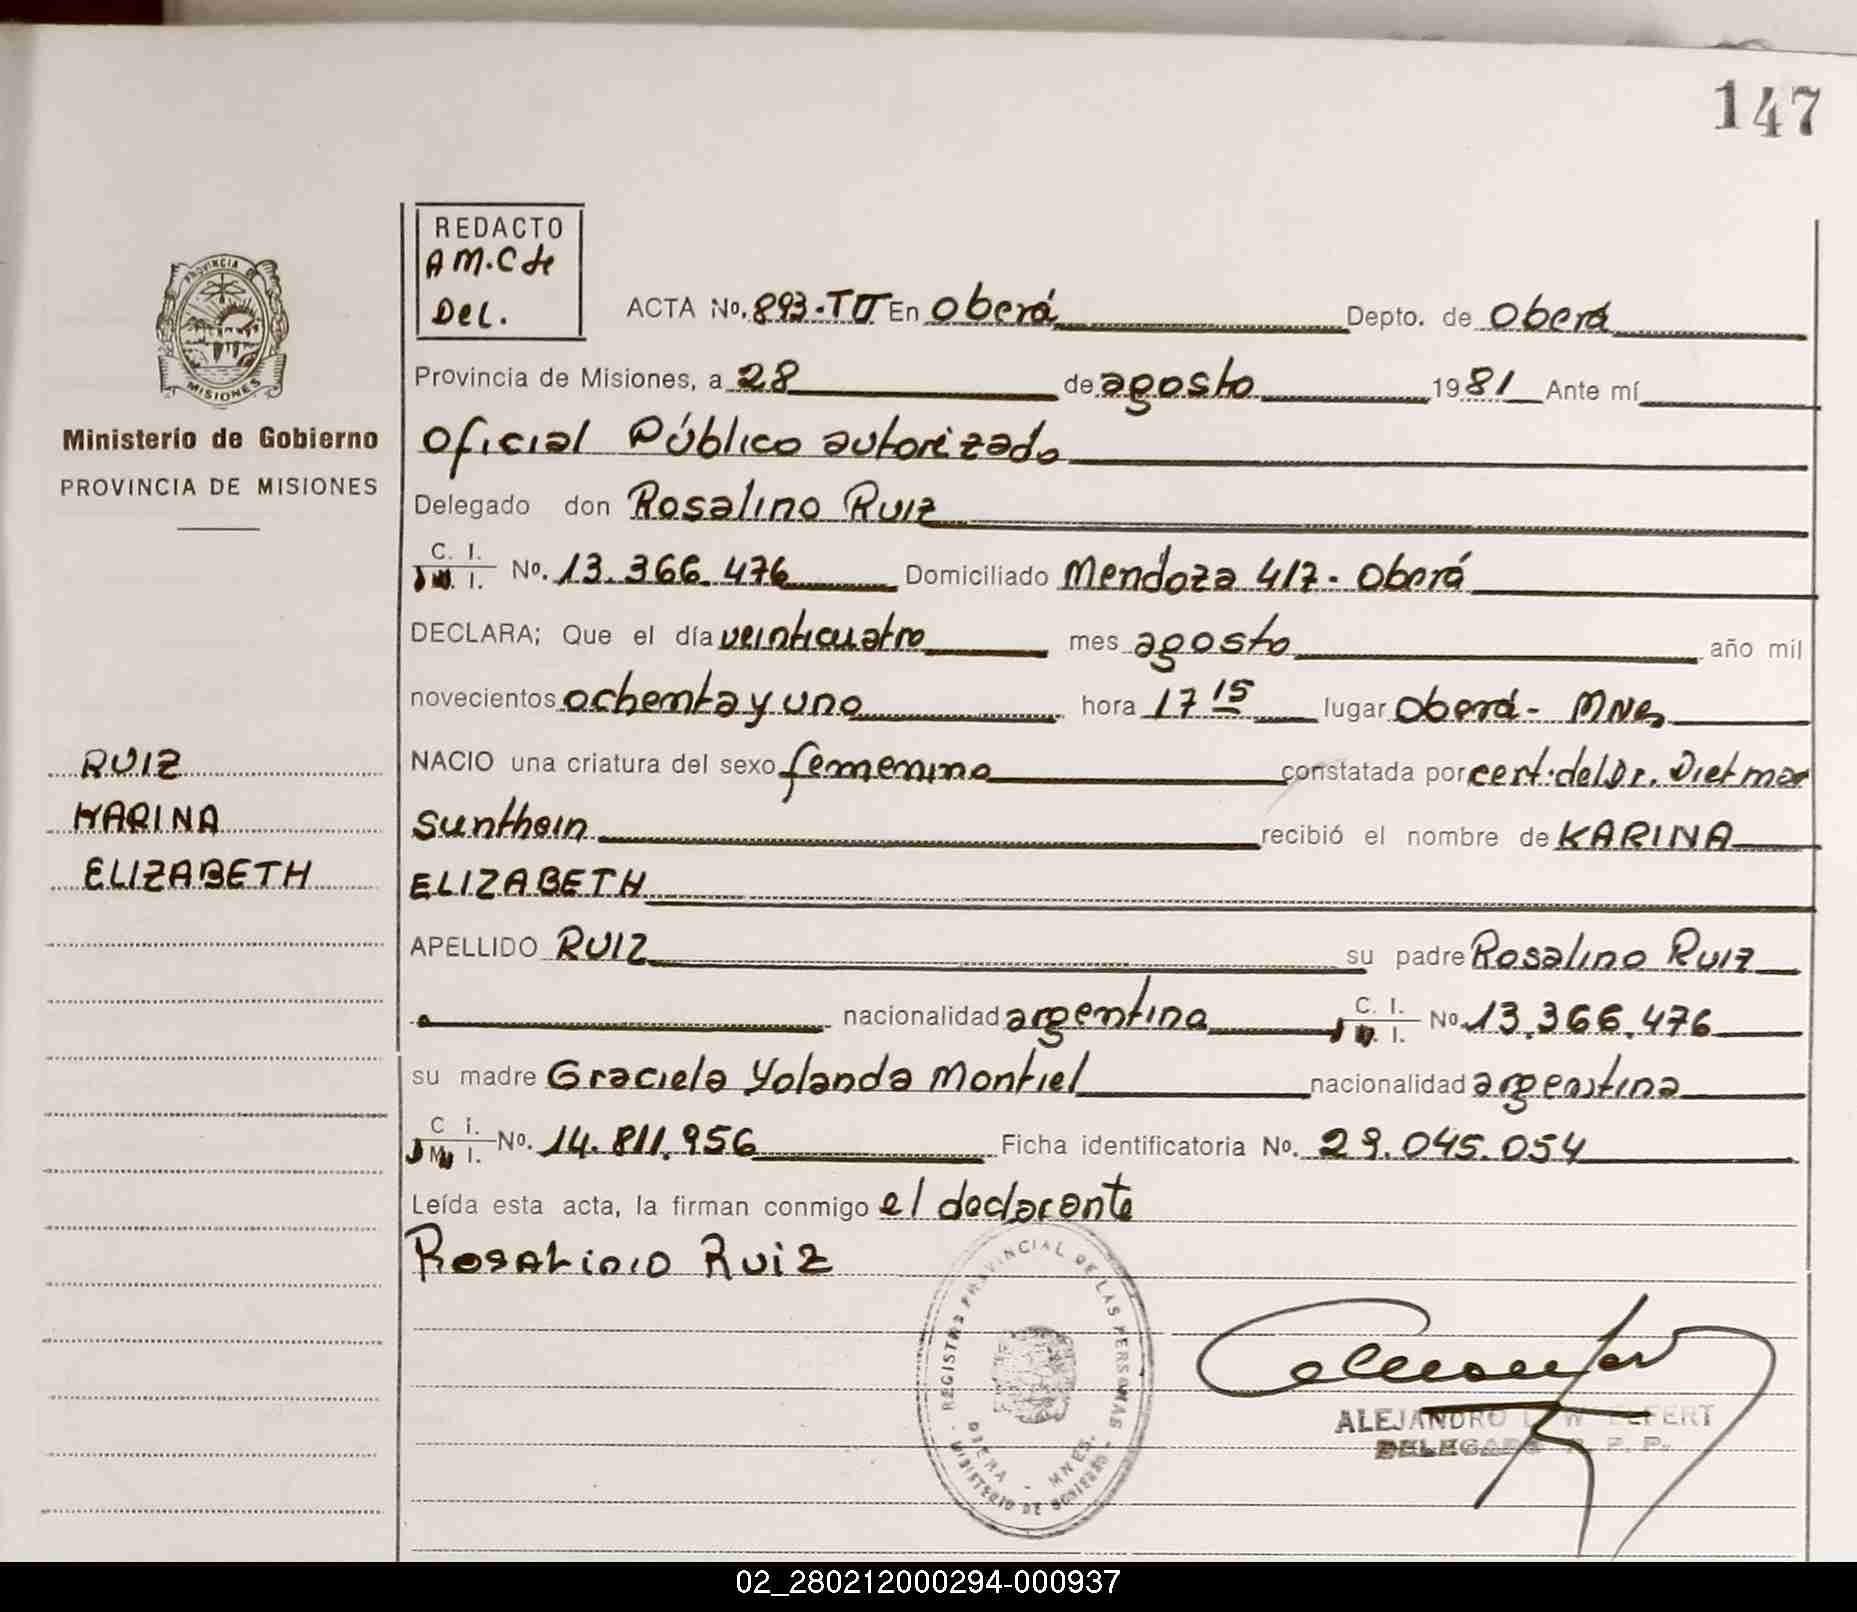 147
REDACTO
A M.C de
Del.
ACTA No. 893-TII En Oberá Depto. de Oberá
Provincia de Misiones, a 28 de agosto 1981 Ante mí
Oficial Público autorizado
Delegado don Rosalino Ruiz
C. I. No. 13.366.476 Domiciliado Mendoza 417 - Oberá
DECLARA; Que el día veinticuatro mes agosto año mil
novecientos ochenta y uno hora 17 15 lugar Oberá - Mnes
NACIO una criatura del sexo femenino constatada por cert. del Dr. Dietmar
Sunthein recibió el nombre de KARINA
ELIZABETH
APELLIDO RUIZ su padre Rosalino Ruiz
nacionalidad argentina C. I. No. 13.366.476
su madre Graciela Yolanda Montiel nacionalidad argentina
C. I. M. I. No. 14.811.956 Ficha identificatoria No. 29.045.054
Leída esta acta, la firman conmigo el declarante
Rosalino Ruiz
PROVINCIA DE
MISIONES
Ministerio de Gobierno
PROVINCIA DE MISIONES
RUIZ
KARINA
ELIZABETH
REGISTRO PROVINCIAL DE LAS PERSONAS
OBERA - MNES.
MINISTERIO DE GOBIERNO
ALEJANDRO
DELEGADO R. P. P.
02_280212000294-000937